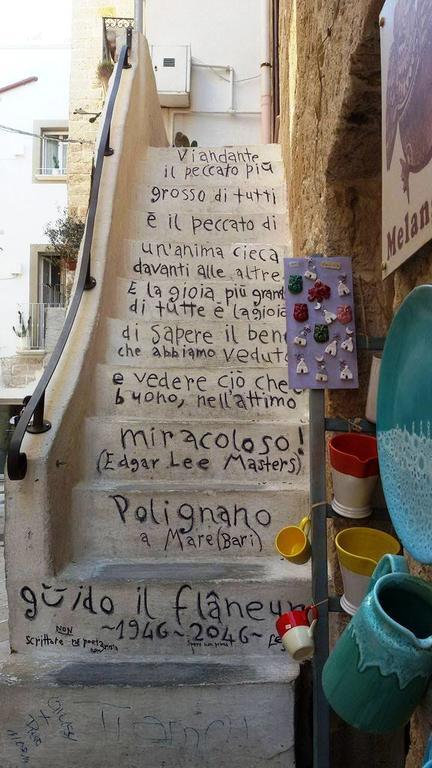 Viandante
il peccato più
grosso di tutti
è il peccato di
un'anima cieca
davanti alle altre
E la gioia più gran
di tutte è la gioia
di sapere il ben
che abbiamo veduto
e vedere ciò che
buono, nell'attimo
miracoloso!
(Edgar Lee Masters)
Polignano
a Mare (Bari)
guido il flâneur
~1946~2046~
NON
Melan